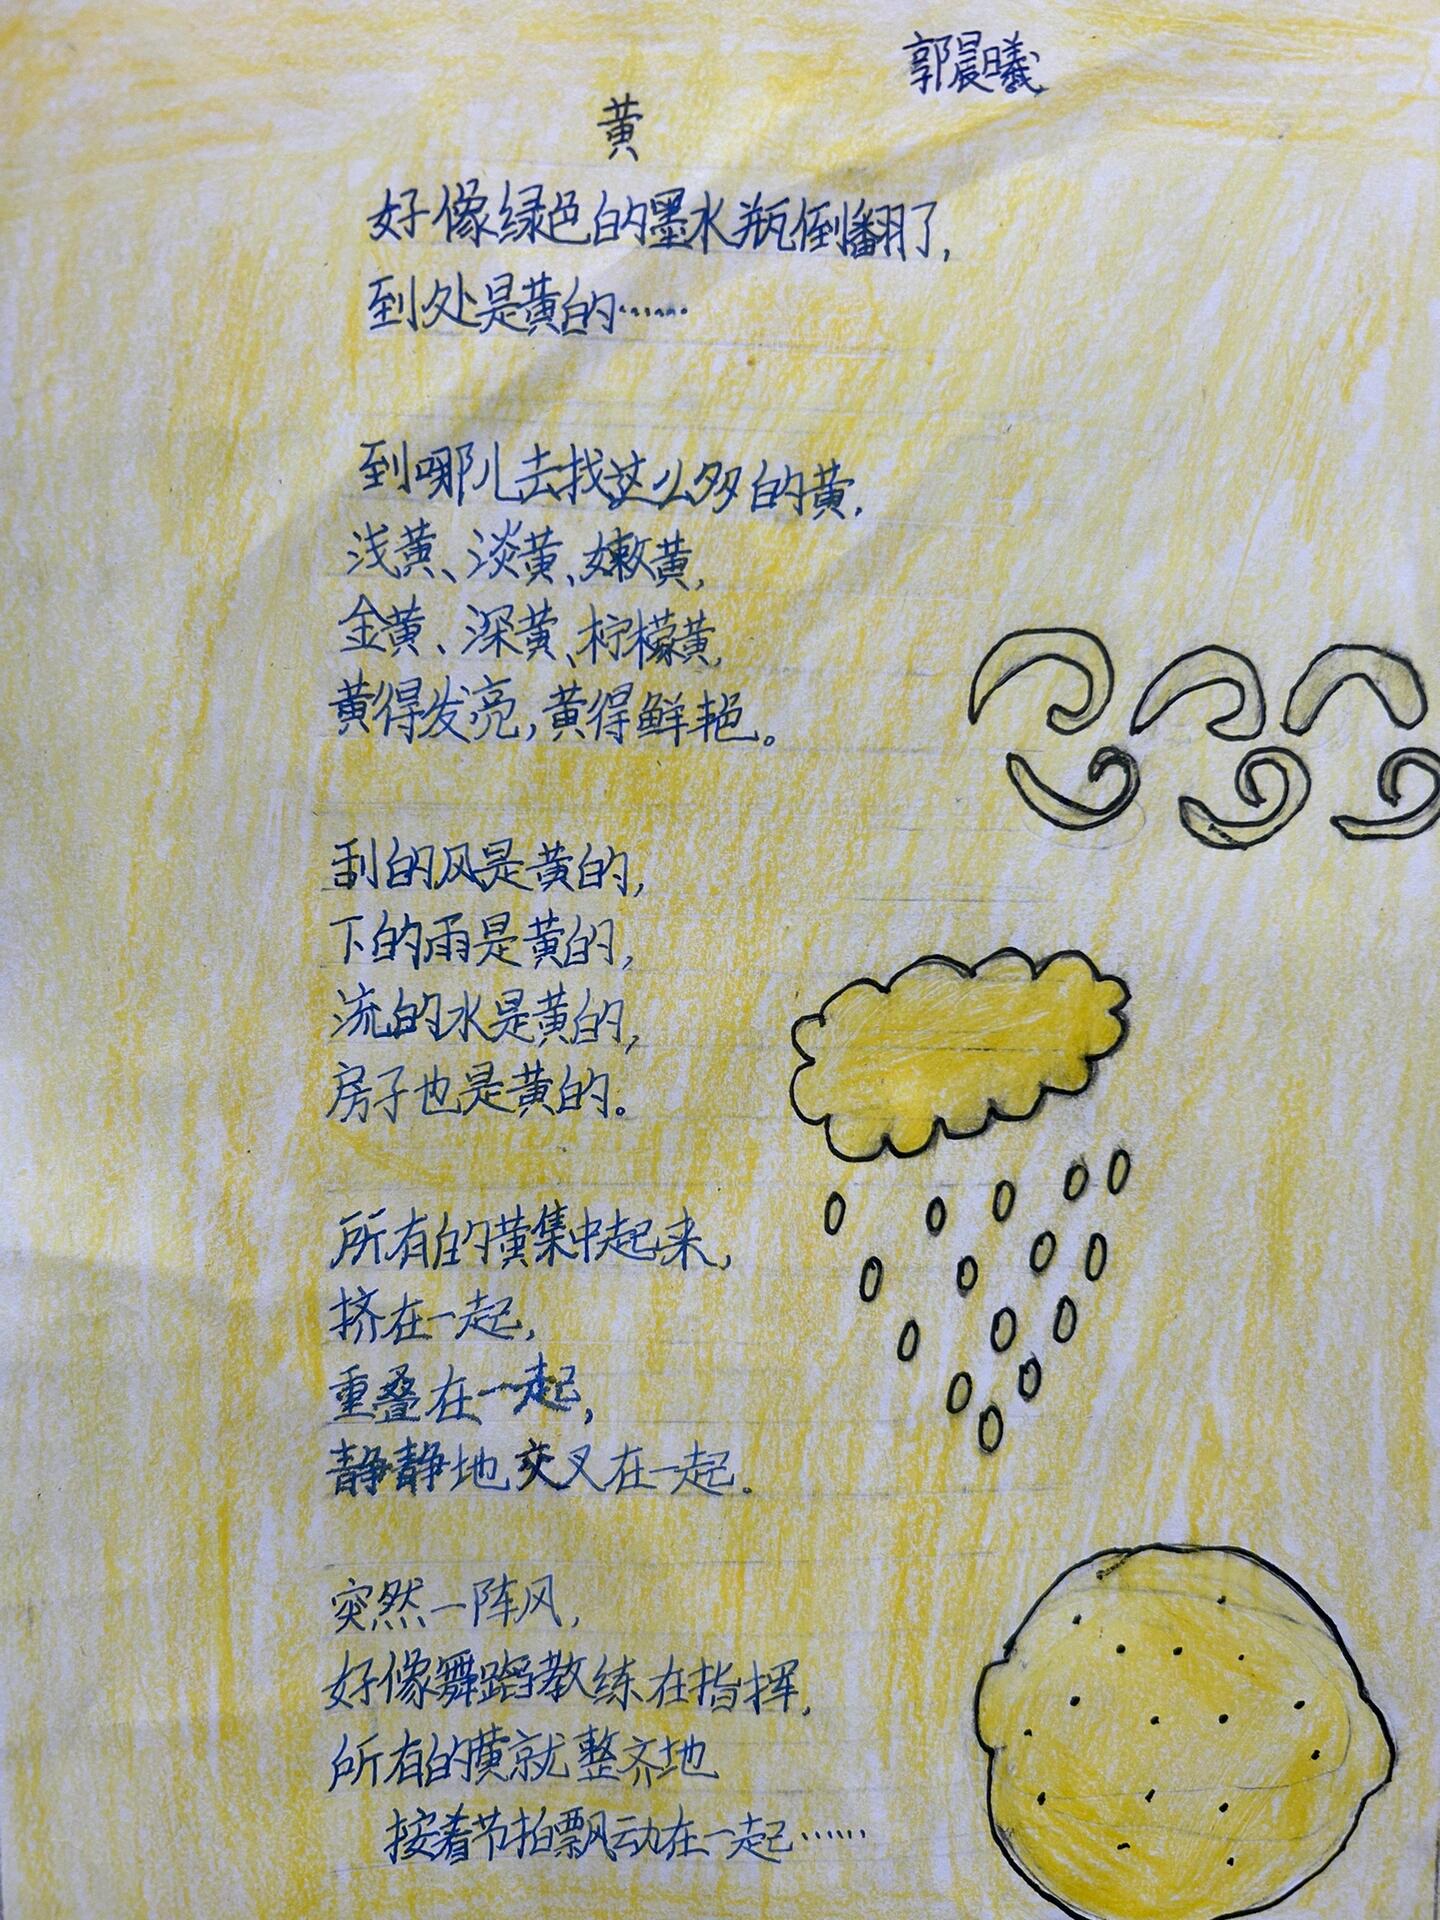 郭晨曦
黄
好像绿色的墨水瓶倒翻了,
到处是黄的……
到哪儿去找这么多的黄,
浅黄、淡黄、嫩黄,
金黄、深黄、柠檬黄,
黄得发亮,黄得鲜艳。
刮的风是黄的,
下的雨是黄的,
流的水是黄的,
房子也是黄的。
所有的黄集中起来,
挤在一起,
重叠在一起,
静静地交叉在一起。
突然一阵风,
好像舞蹈教练在指挥,
所有的黄就整齐地
按着节拍飘动在一起……